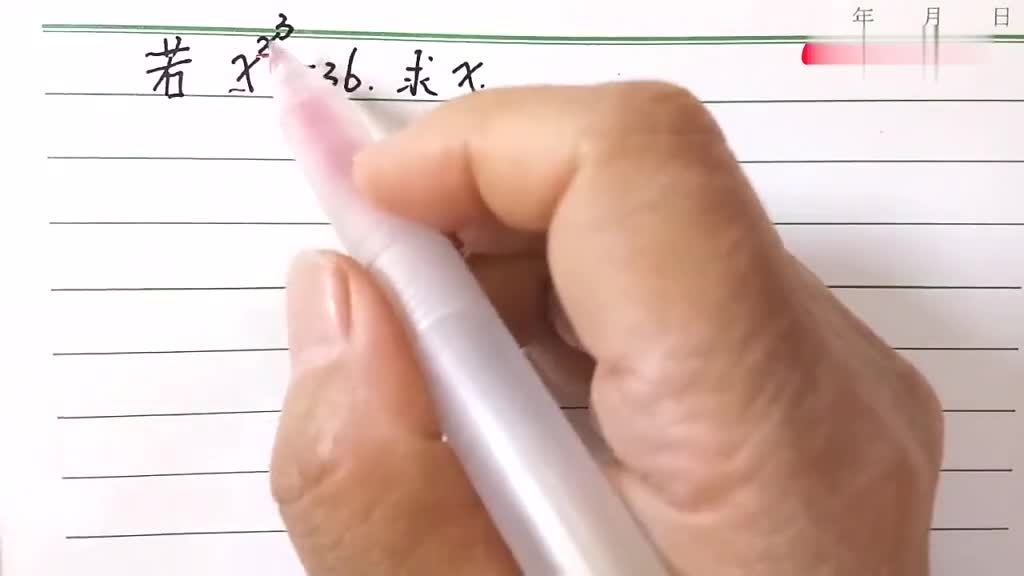 年 月 日
若 x^2^3 =36. 求 x.